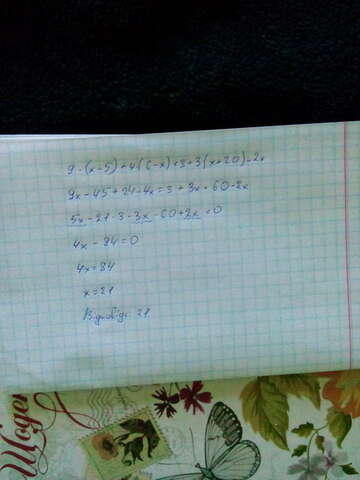 9·(x-5)+4(6-x)+3+3(x+20)-2x
9x-45+24-4x=3+3x+60-2x
5x-21-3-3x-60+2x=0
4x-84=0
4x=84
x=21
21
Щоден